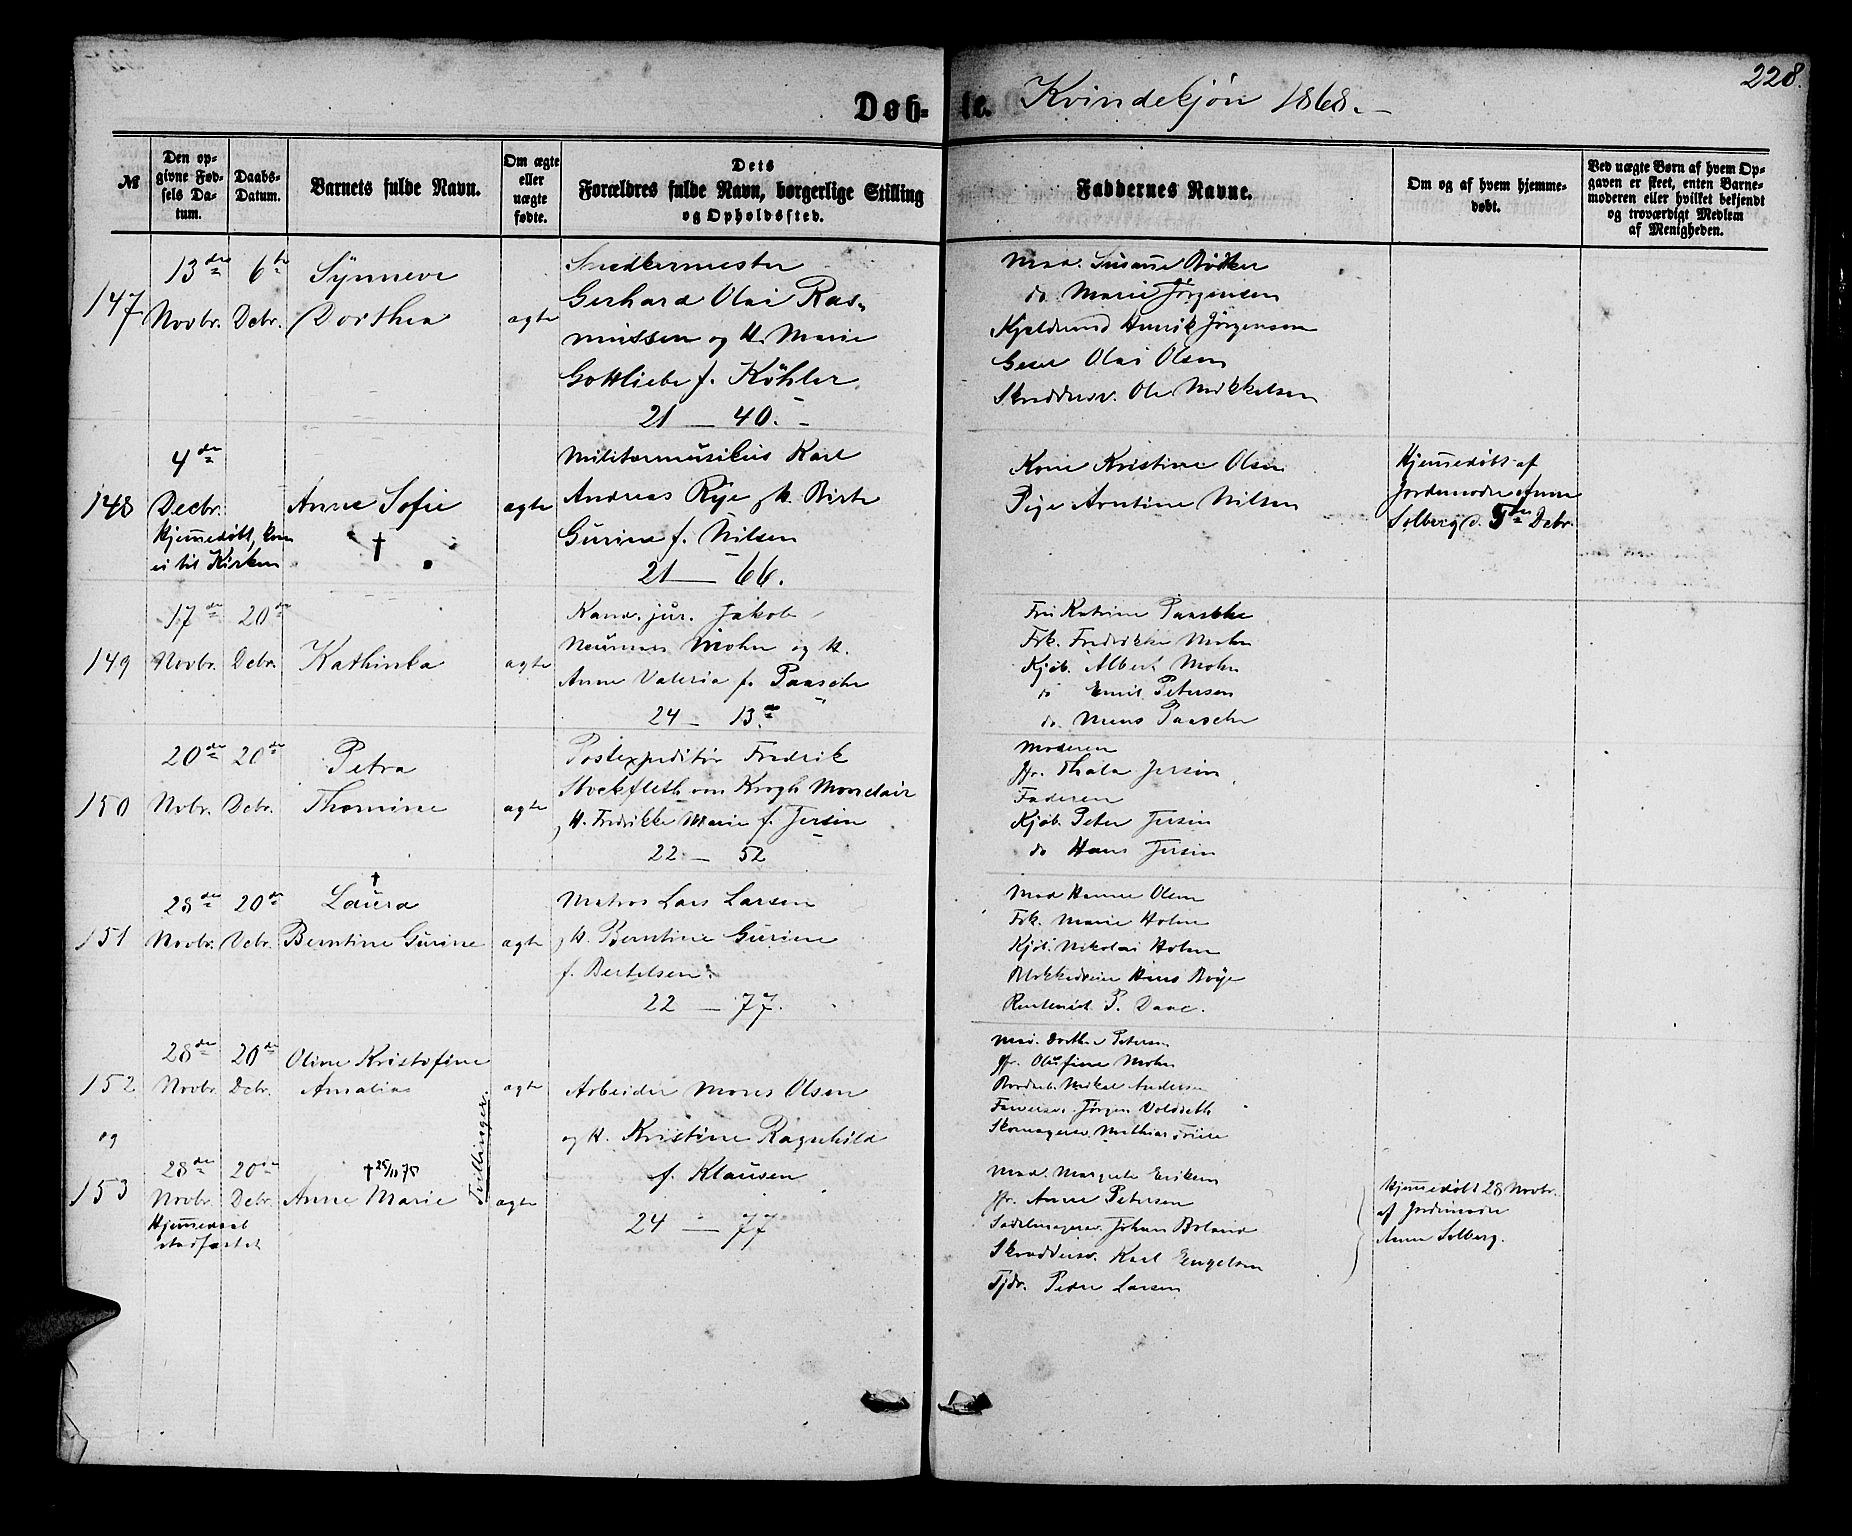 228.
Døb-te. Kvindekjøn 1868.
№
Den opgivne Fødsels Datum.
Daabs-Datum.
Barnets fulde Navn.
Om ægte eller uægte fødte.
Dets Forældres fulde Navn, borgerlige Stilling og Opholdssted.
Faddernes Navne.
Om og af hvem hjemmedøbt.
Ved uægte Børn af hvem Opgaven er skeet, enten Barnemoderen eller hvilket bekjendt og troværdigt Medlem af Menigheden.
147
13de Novbr.
6te Debr.
Synneve
Dorthea
ægte
Snedkermester
Gerhard Olai Ras-
mussen og H. Marie
Gottliebe f. Köhler
21 — 40.
Mad. Susanne Bödker
do Marie Jörgensen
Henrik Jörgensen
Olai Olsen
Skrædersv. Ole Mikkelsen
148
4de
Decbr.
Hjemmedøbt, kom
ei til Kirken
Anne Sofie
†
ægte
Militærmusikus Karl
Andreas Rye og H. Birte
Gurine f. Nilsen
21 — 66.
Kone Kristine Olsen
Pige Arntine Nilsen
Hjemmedøbt af
Jordemoder Anne
Solberg d. 5te Debr.
149
17de Novbr.
20de Debr.
Kathinka
ægte
Kand. jur. Jakob
Neumann Mohn og H.
Anne Valeria f. Paasche
24 — 13.
Fru Katrine Paasche
Frk. Fredrikke Mohn
Kjøb. Albert Mohn
do Emil Petersen
do Mons Paasche
150
20de Novbr.
20de Debr.
Petra
Thomine
ægte
Postexpeditør Fredrik
Stockfleth von Krogh Monclair
og H. Fredrikke Marie f. Jersin
22 — 52
Moderen
Jfr. Thala Jersin
Faderen
Kjøb. Peter Jersin
do Hans Jersin
151
28de Novbr.
20de Debr.
†
Laura
Berntine Gurine
ægte
Matros Lars Larsen
og H. Berntine Gurine
f. Bertelsen.
22 — 77.
Mad Hanne Olsen
Frk. Marie Holm
Kjøb. Nikolai Holm
Blokkedreier Hans Bøye
P. Daae.
152
28de Novbr.
20de Debr.
Oline Kristofine
Amalia
Tvillinger.
ægte
Arbeider Mons Olsen
og H. Kristine Ragnhild
f. Klausen
24 — 77
Mad. Dorthe Petersen
Jfr. Olufine Mohn
Mikal Andersen
Farversv. Jörgen Voldseth
Skomagersv. Mathias
og
153
28de Novbr.
20de Debr.
Hjemmedaab
stadfæstet
† 25/11 75
Anne Marie
ægte
Mad. Margrete Eriksen
Jfr. Anne Petersen
Sadelmagersv. Johan Boland
Skræddersv. Karl Engelsen
Tjdr. Peder Larsen
Hjemmedøbt 28 Novbr.
af Jordemoder
Anne Solberg.